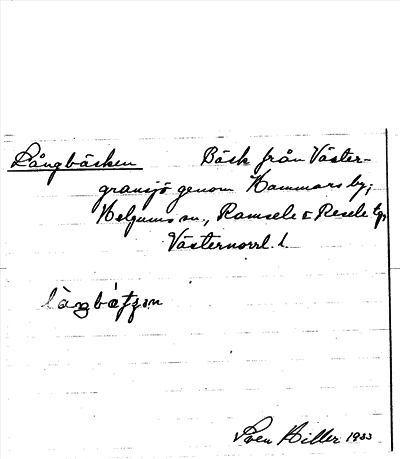 Långbäcken Bäck från Väster-
gransjö genom Hammars by,
Helgums sn, Ramsele o Resele tg,
Västernorrl. l.
Sven Hiller 1933